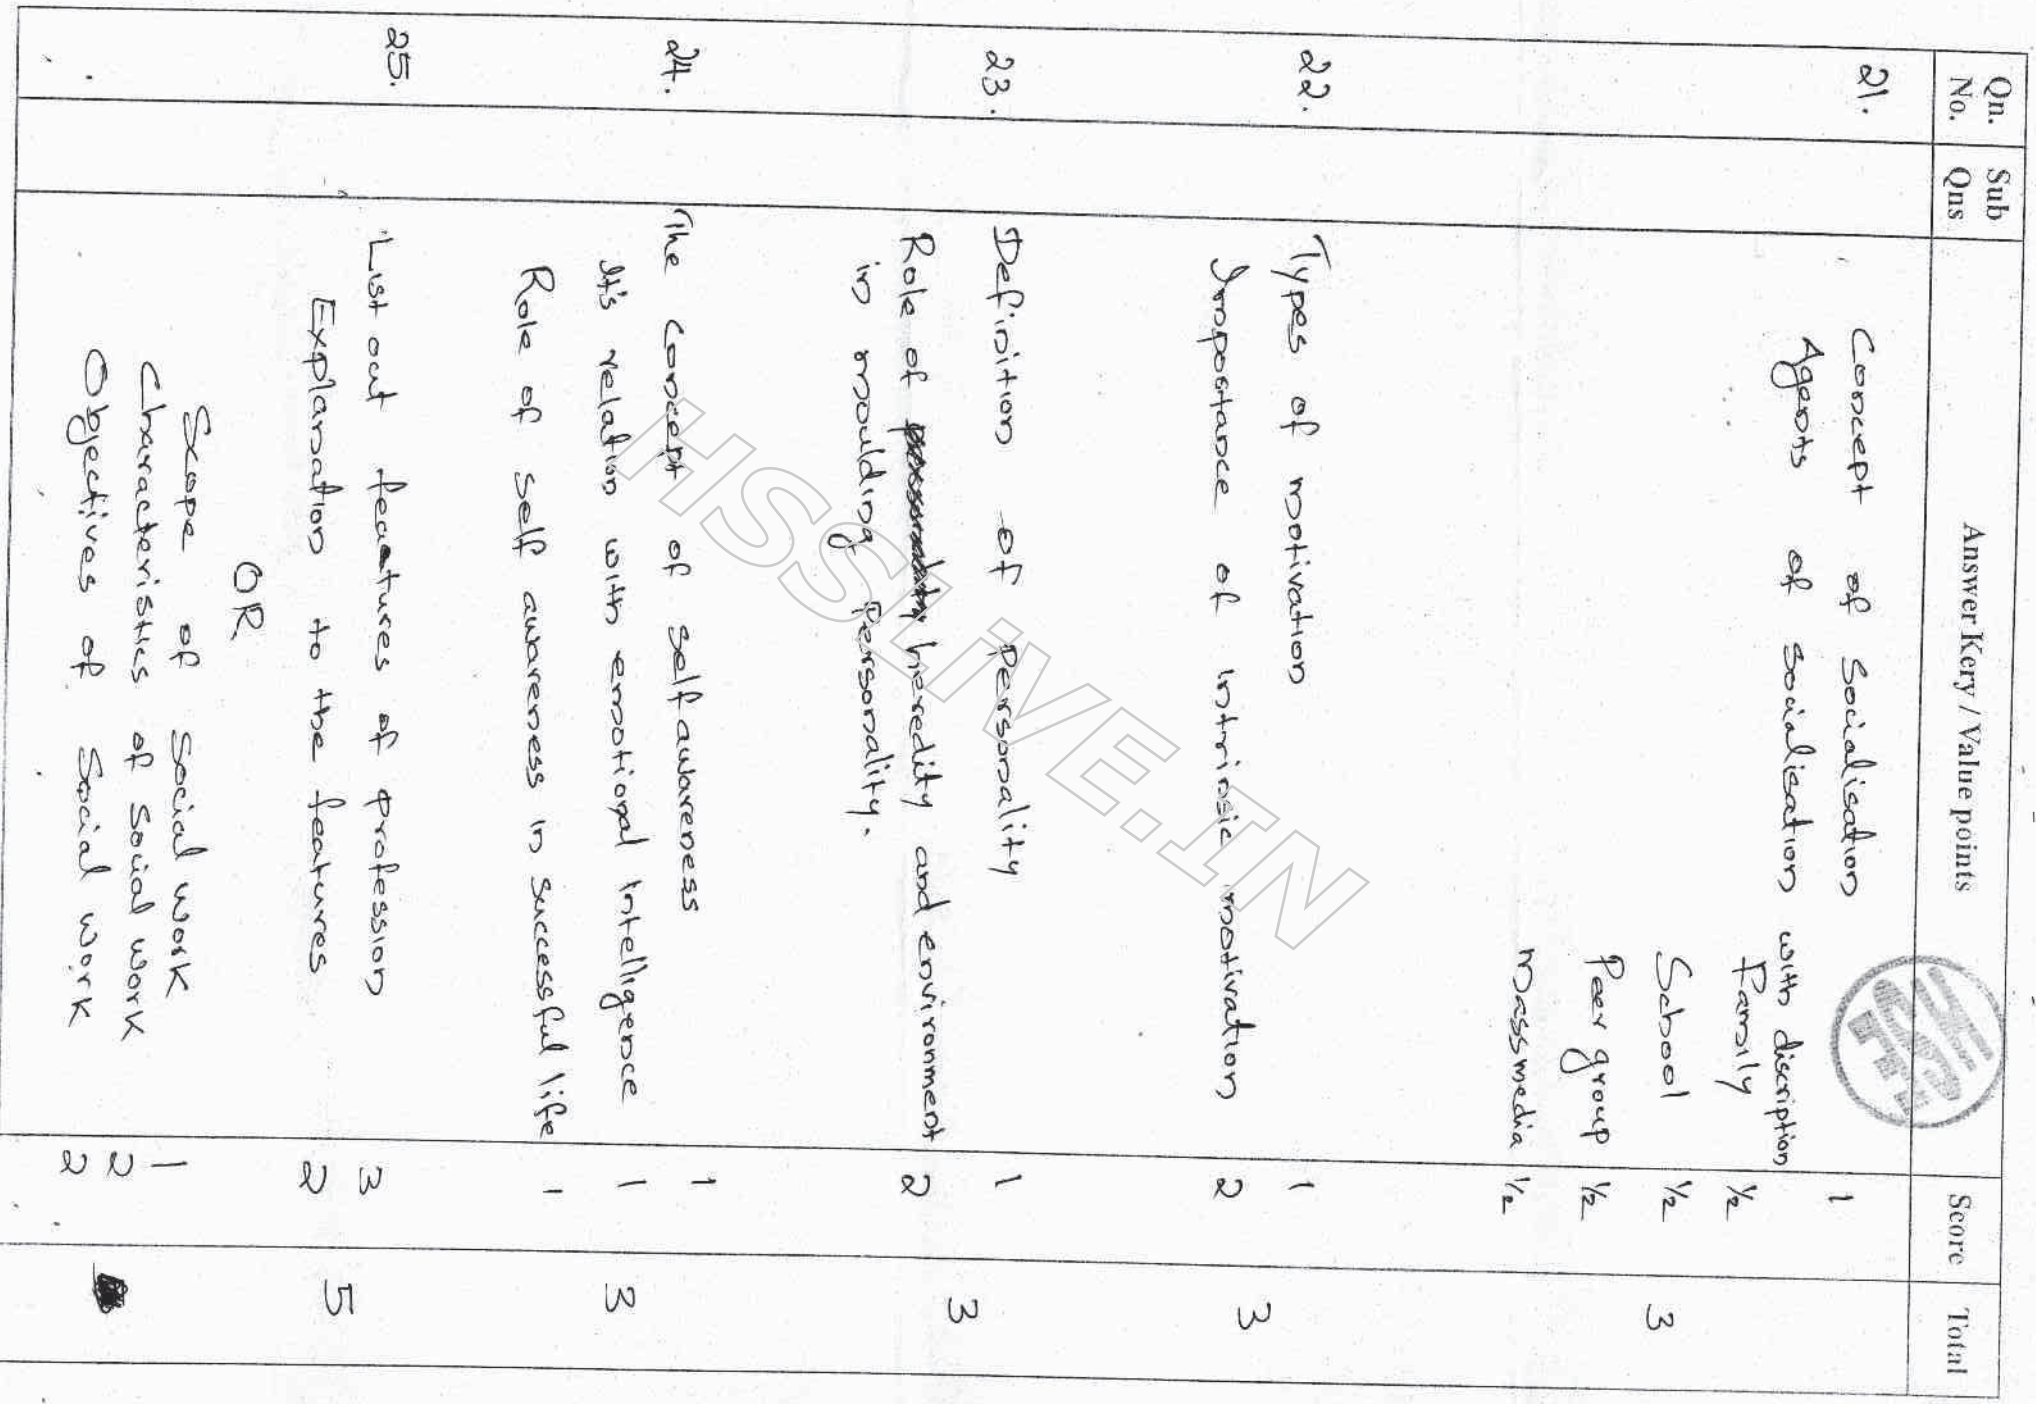 Qn. No. Sub Qns Answer Kery / Value points Score Total
21. Concept of Socialisation 1
Agents of Socialisation with discription
Family 1/2
School 1/2
Peer group 1/2
massmedia 1/2
3
22. Types of motivation 1
Importance of Intrinsic motivation 2
3
23. Definition of personality 1
Role of heredity and environment 2
in moulding Personality.
3
24. The Concept of self awareness 1
It's relation with emotional Intelligence 1
Role of self awareness in successful life 1
3
25. List out features of profession 3
Explanation to the features 2
5
OR.
Scope of Social work 1
Characteristics of Social work 2
Objectives of Social work 2
HSE
HSSLiVE.IN